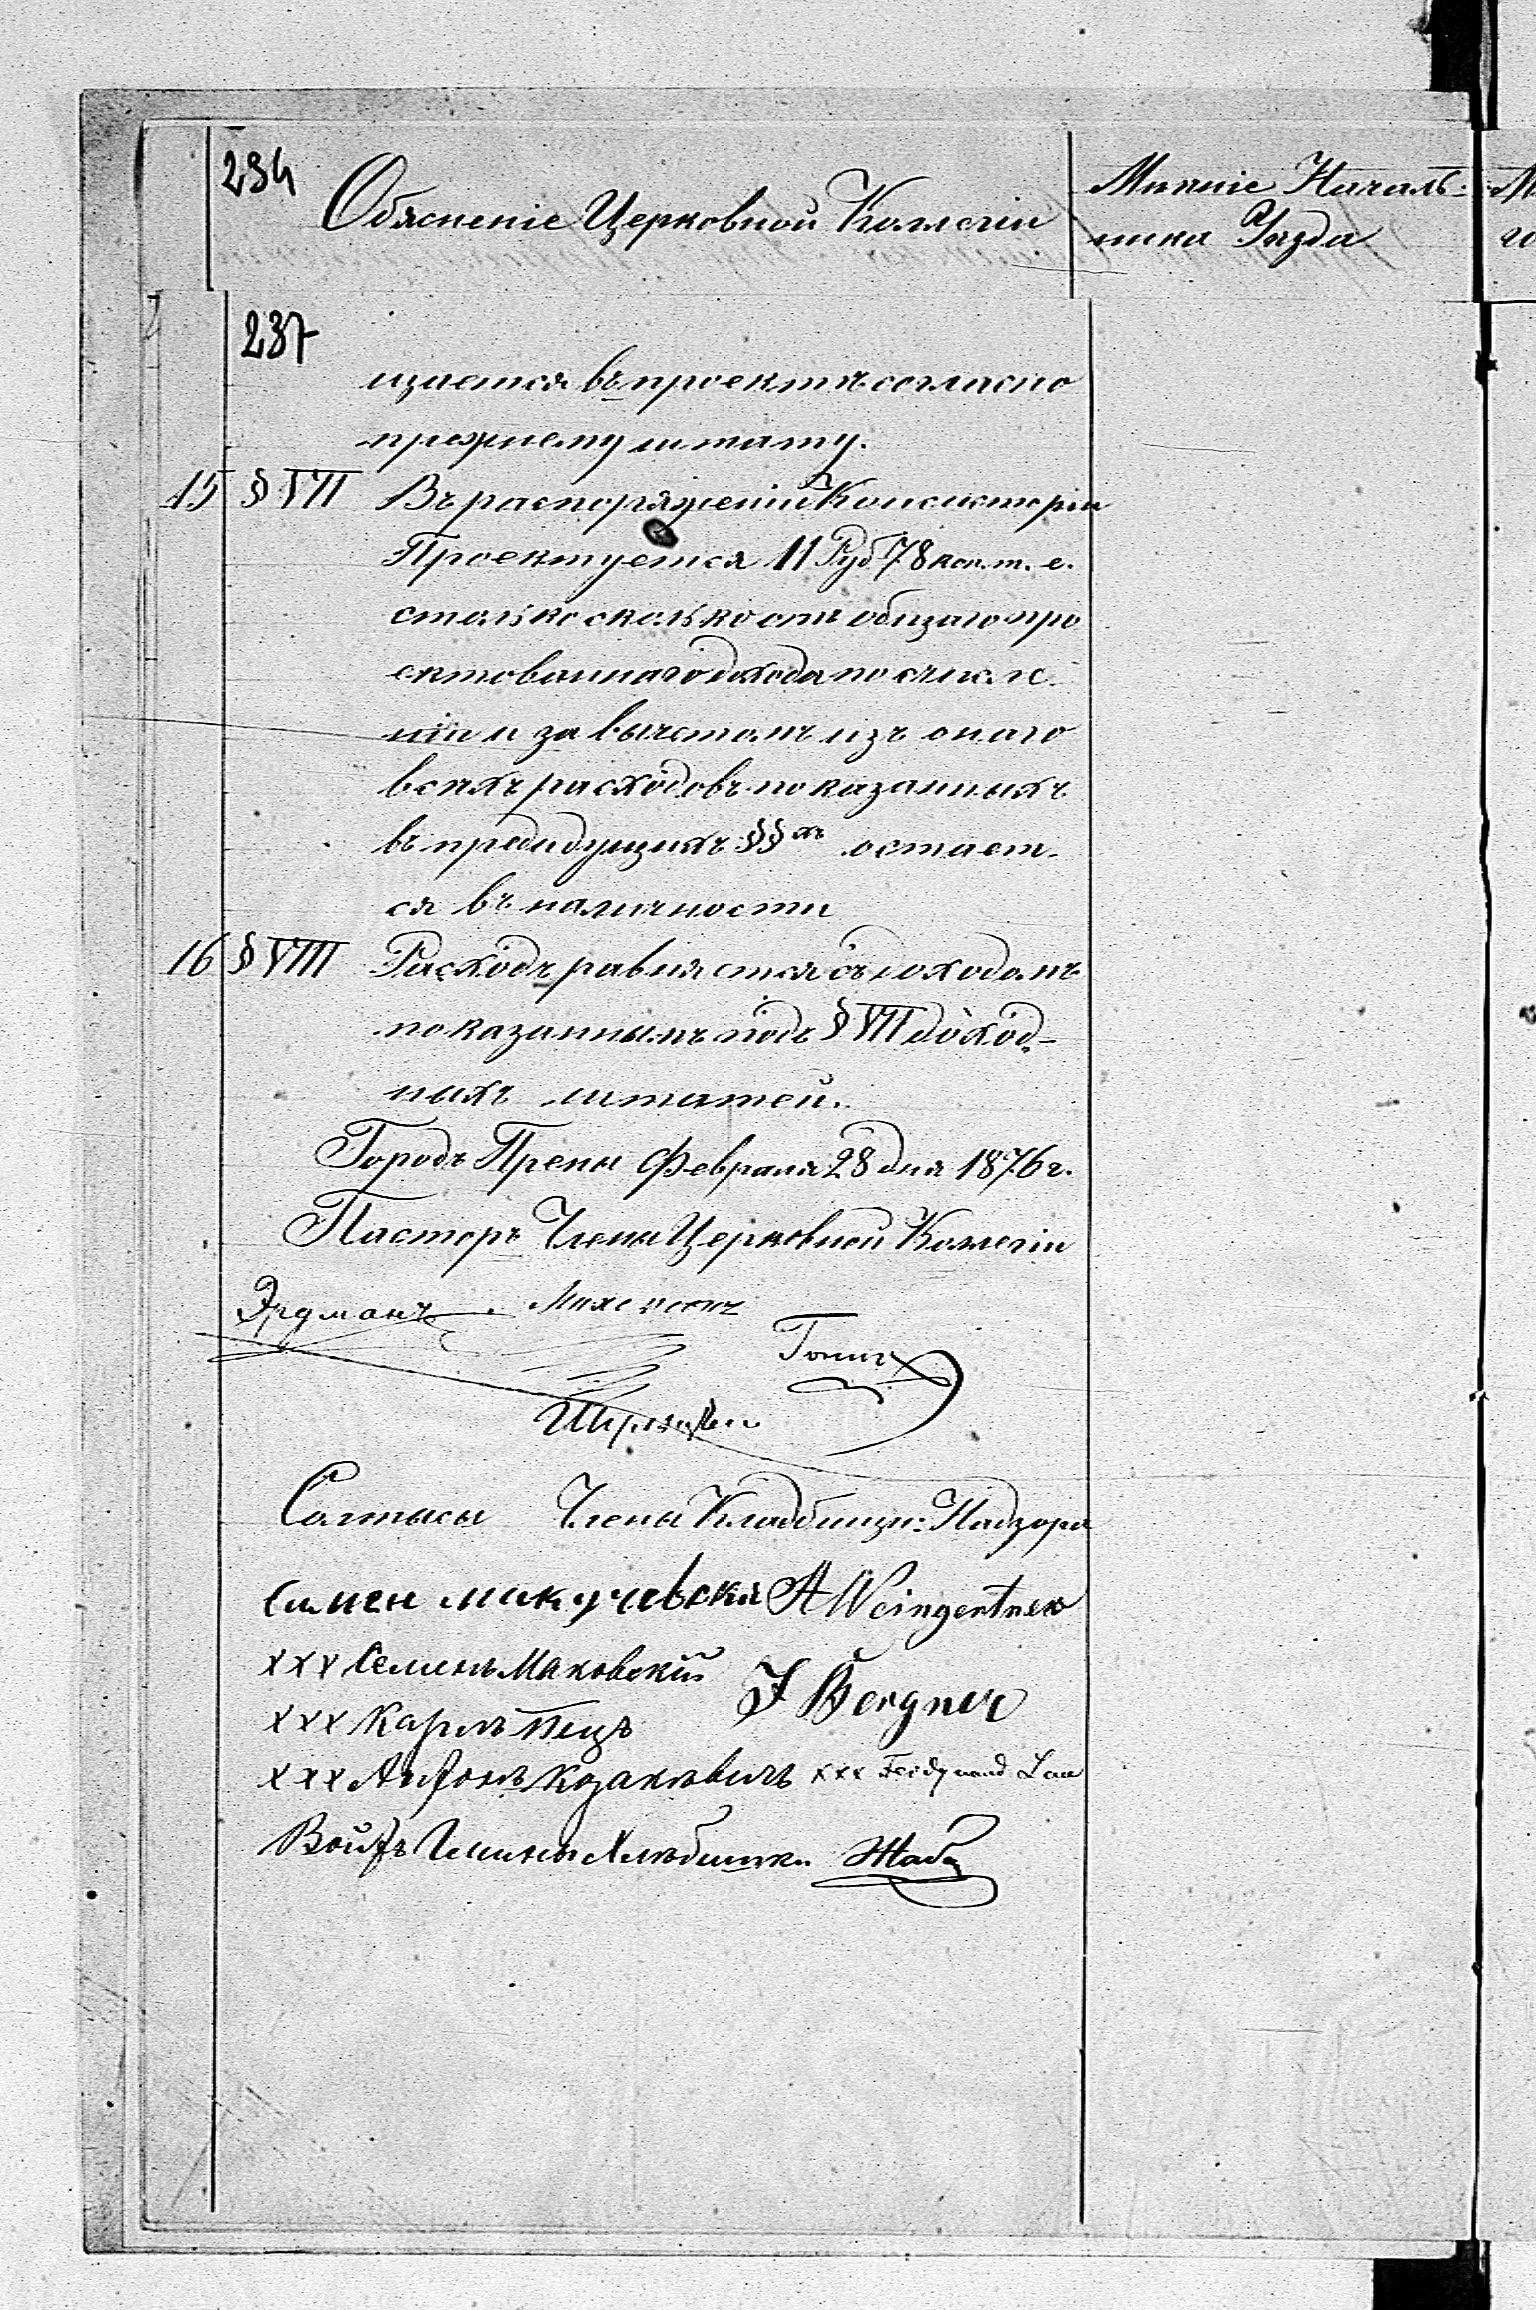 234
Обясненіе Церковной Коллегіи
Мнѣніе Началь-
ника Уѣзда
237
щается въ проектѣ согласно
прежнему штату.
15 § VII Въ распоряженіи Консисторіи
Проектуется 11 Руб 78 коп. т. е.
столько сколько отъ общаго про
ектованнаго дохода по счисле
ніи и за вычетомъ изъ онаго
всѣхъ расходовъ показанныхъ
въ предидущихъ §§хъ остает-
ся въ наличности
16 § VIII Расходъ равняется съ доходомъ
показаннымъ подъ § VII доход-
ныхъ штатей.
Городъ Прены Февраля 28 дня 1876 г.
Пасторъ Члены Церковной Коллегіи
Эрдманъ
Гоних
Солтысы Члены Кладбищн: Надзора
A Weingertner
ххх Семенъ Маковскій
J Bergner
ххх Карлъ Пецъ
ххх Антонъ Козакевичъ ххх Ferdynand Lau
Войтъ Гмины Жаба